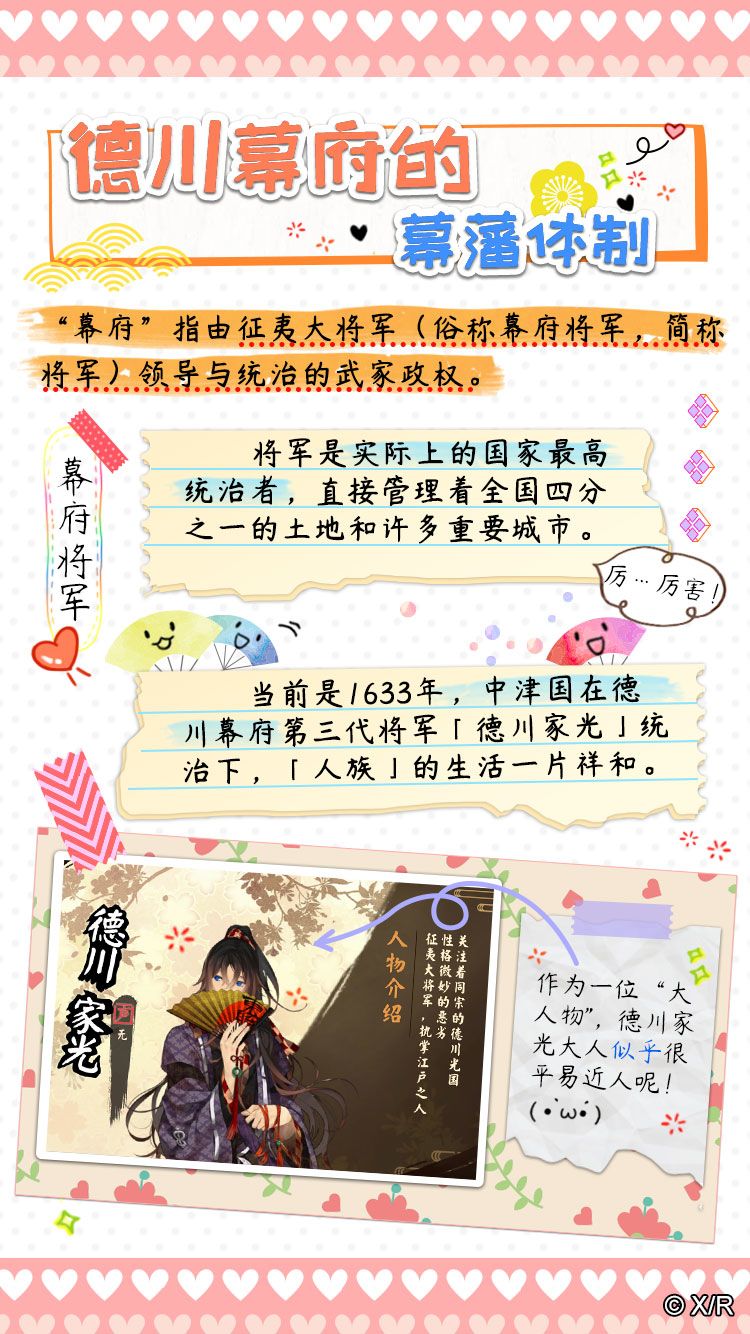 德川幕府的
幕藩体制
“幕府”指由征夷大将军（俗称幕府将军，简称
将军）领导与统治的武家政权。
幕府将军
将军是实际上的国家最高
统治者，直接管理着全国四分
之一的土地和许多重要城市。
厉…厉害！
当前是1633年，中津国在德
川幕府第三代将军「德川家光」统
治下，「人族」的生活一片祥和。
德川 家光
无
人物介绍
征夷大将军，执掌江户之人
性格微妙的恶劣
关注着同宗的德川光国
作为一位“大
人物”，德川家
光大人似乎很
平易近人呢！
(•̀ω•́)
© X/R